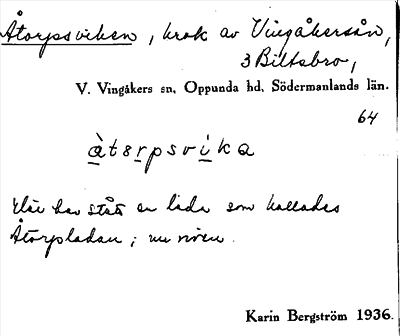 Åtorpsviken, krok av Vingåkersån,
3 Biltsbro,
V. Vingåkers sn, Oppunda hd, Södermanlands län.
64
åtorpsvika
Här har stått en lada som kallades
Åtorpladan; nu riven.
Karin Bergström 1936.